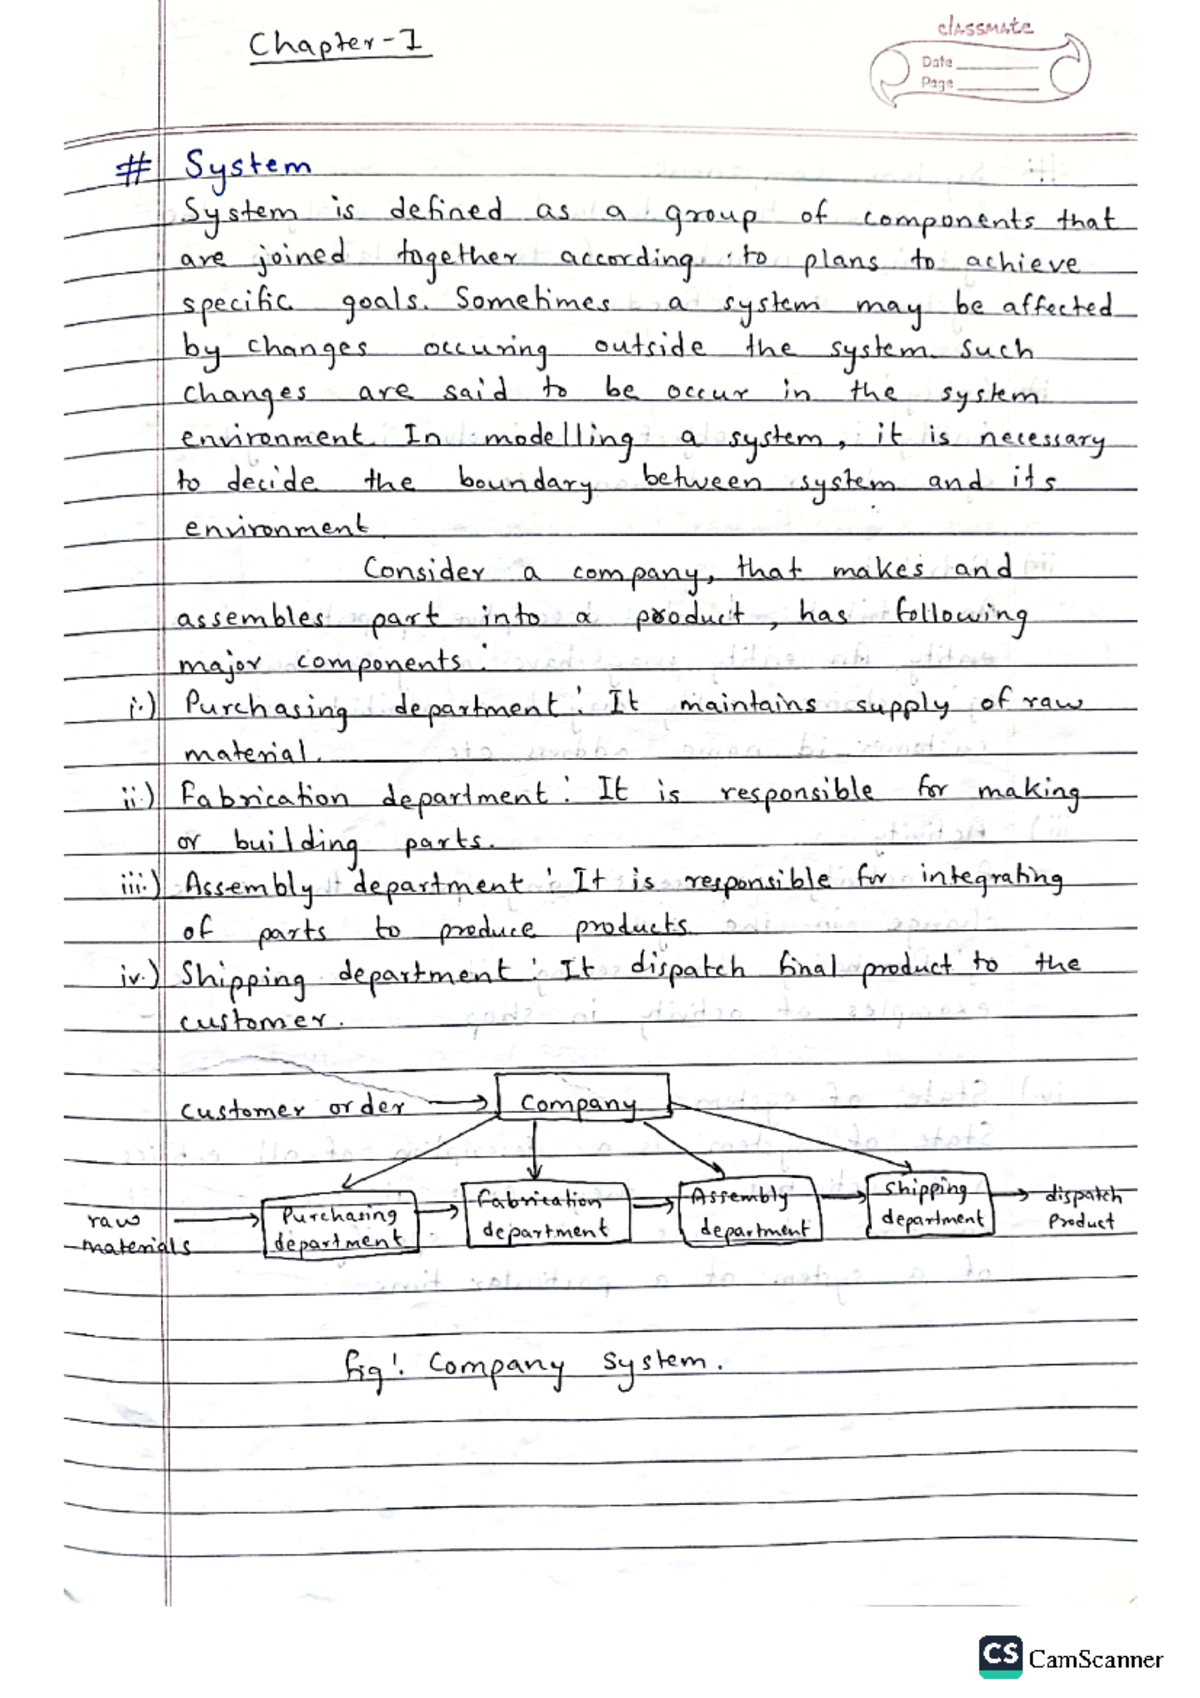 Chapter-1
classmate
Date
Page
# System
System is defined as a group of components that
are joined together according to plans to achieve
specific goals. Sometimes a system may be affected
by changes occuring outside the system. Such
changes are said to be occur in the system
environment. In modelling a system, it is necessary
to decide the boundary between system and its
environment.
Consider a company, that makes and
assembles part into a product, has following
major components:
i.) Purchasing department: It maintains supply of raw
material.
ii.) Fabrication department: It is responsible for making
or building parts.
iii.) Assembly department: It is responsible for integrating
of parts to produce products.
iv.) Shipping department: It dispatch final product to the
customer.
customer order
Company
raw
materials
Purchasing
department
Fabrication
department
Assembly
department
Shipping
department
dispatch
Product
fig: Company System.
CS CamScanner